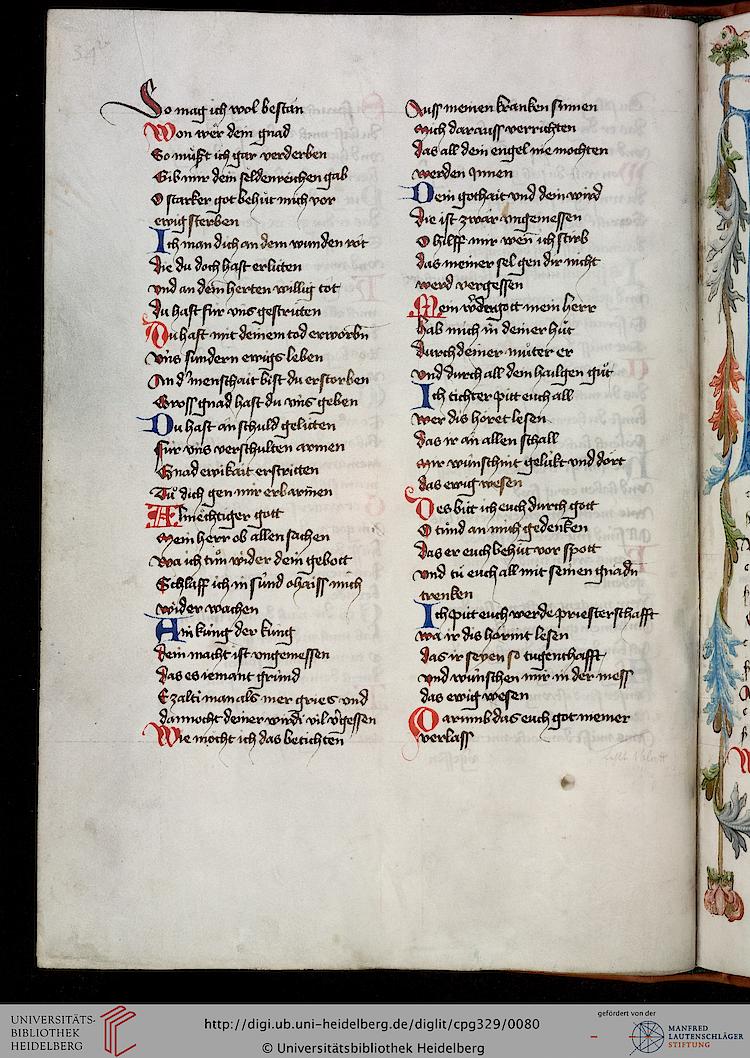 34v
So mag ich wol bestan
Won wër dein gnad
So müst ich gar verderben
Gib mir dein seldenreichen gab
O starker got behüt mich vor
ewig sterben
Ich man dich an dem wunden rot
Die du doch hast erlitten
vnd an dem herten willig tot
du hast für vns gestritten
Du hast mit deinem tod erworbn
vns sundern ewigs leben
In d' menschait bist du erstorben
Gross gnad hast du vns geben
Du hast an schuld gelitten
für vns verschulten armen
Gnad ewikait erstritten
Tů dich gen mir erbarmen
Almechtiger gott
mein herr ob allen sachen
wa ich tun wider dein gebott
Schlaff ich in sünd so haiss mich
wider wachen
Ain küng der küng
dein macht ist vngemessen
das es iemant gründ
E zalti man als mer gries vnd
dannocht deiner wirdi vil v'gessen
Wie möcht ich das betichten
Auss meinen kranken sinnen
mich darauss verrichten
das all dein engel nie mochten
werden innen
Dein gothait vnd dein wird
die ist zwar vngemessen
O hilff mir wen ich stirb
das meiner sel gen dir nicht
werd vergessen
Mein gott mein herr
hab mich in deiner hüt
durch deiner müter er
vnd durch all dein hailgen güt
Ich tichter pitt euch all
wer dis höret lesen
das ir an allen schall
mir wünschint gelükt vnd dort
das ewig wesen
Des bitt ich euch durch gott
O tünd an mich gedenken
das er euch behüt vor spott
vnd tü euch all mit seinen gnadn
trenken
Ich pitt euch werde priesterschafft
wa ir dis hörint lesen
das ir seyen so tugenthafft
vnd wünschen mir in der mess
das ewig wesen
Darumb das euch got niemer
verlass
UNIVERSITÄTS-
BIBLIOTHEK
HEIDELBERG
http://digi.ub.uni-heidelberg.de/diglit/cpg329/0080
© Universitätsbibliothek Heidelberg
gefördert von der
MANFRED
LAUTENSCHLÄGER
STIFTUNG